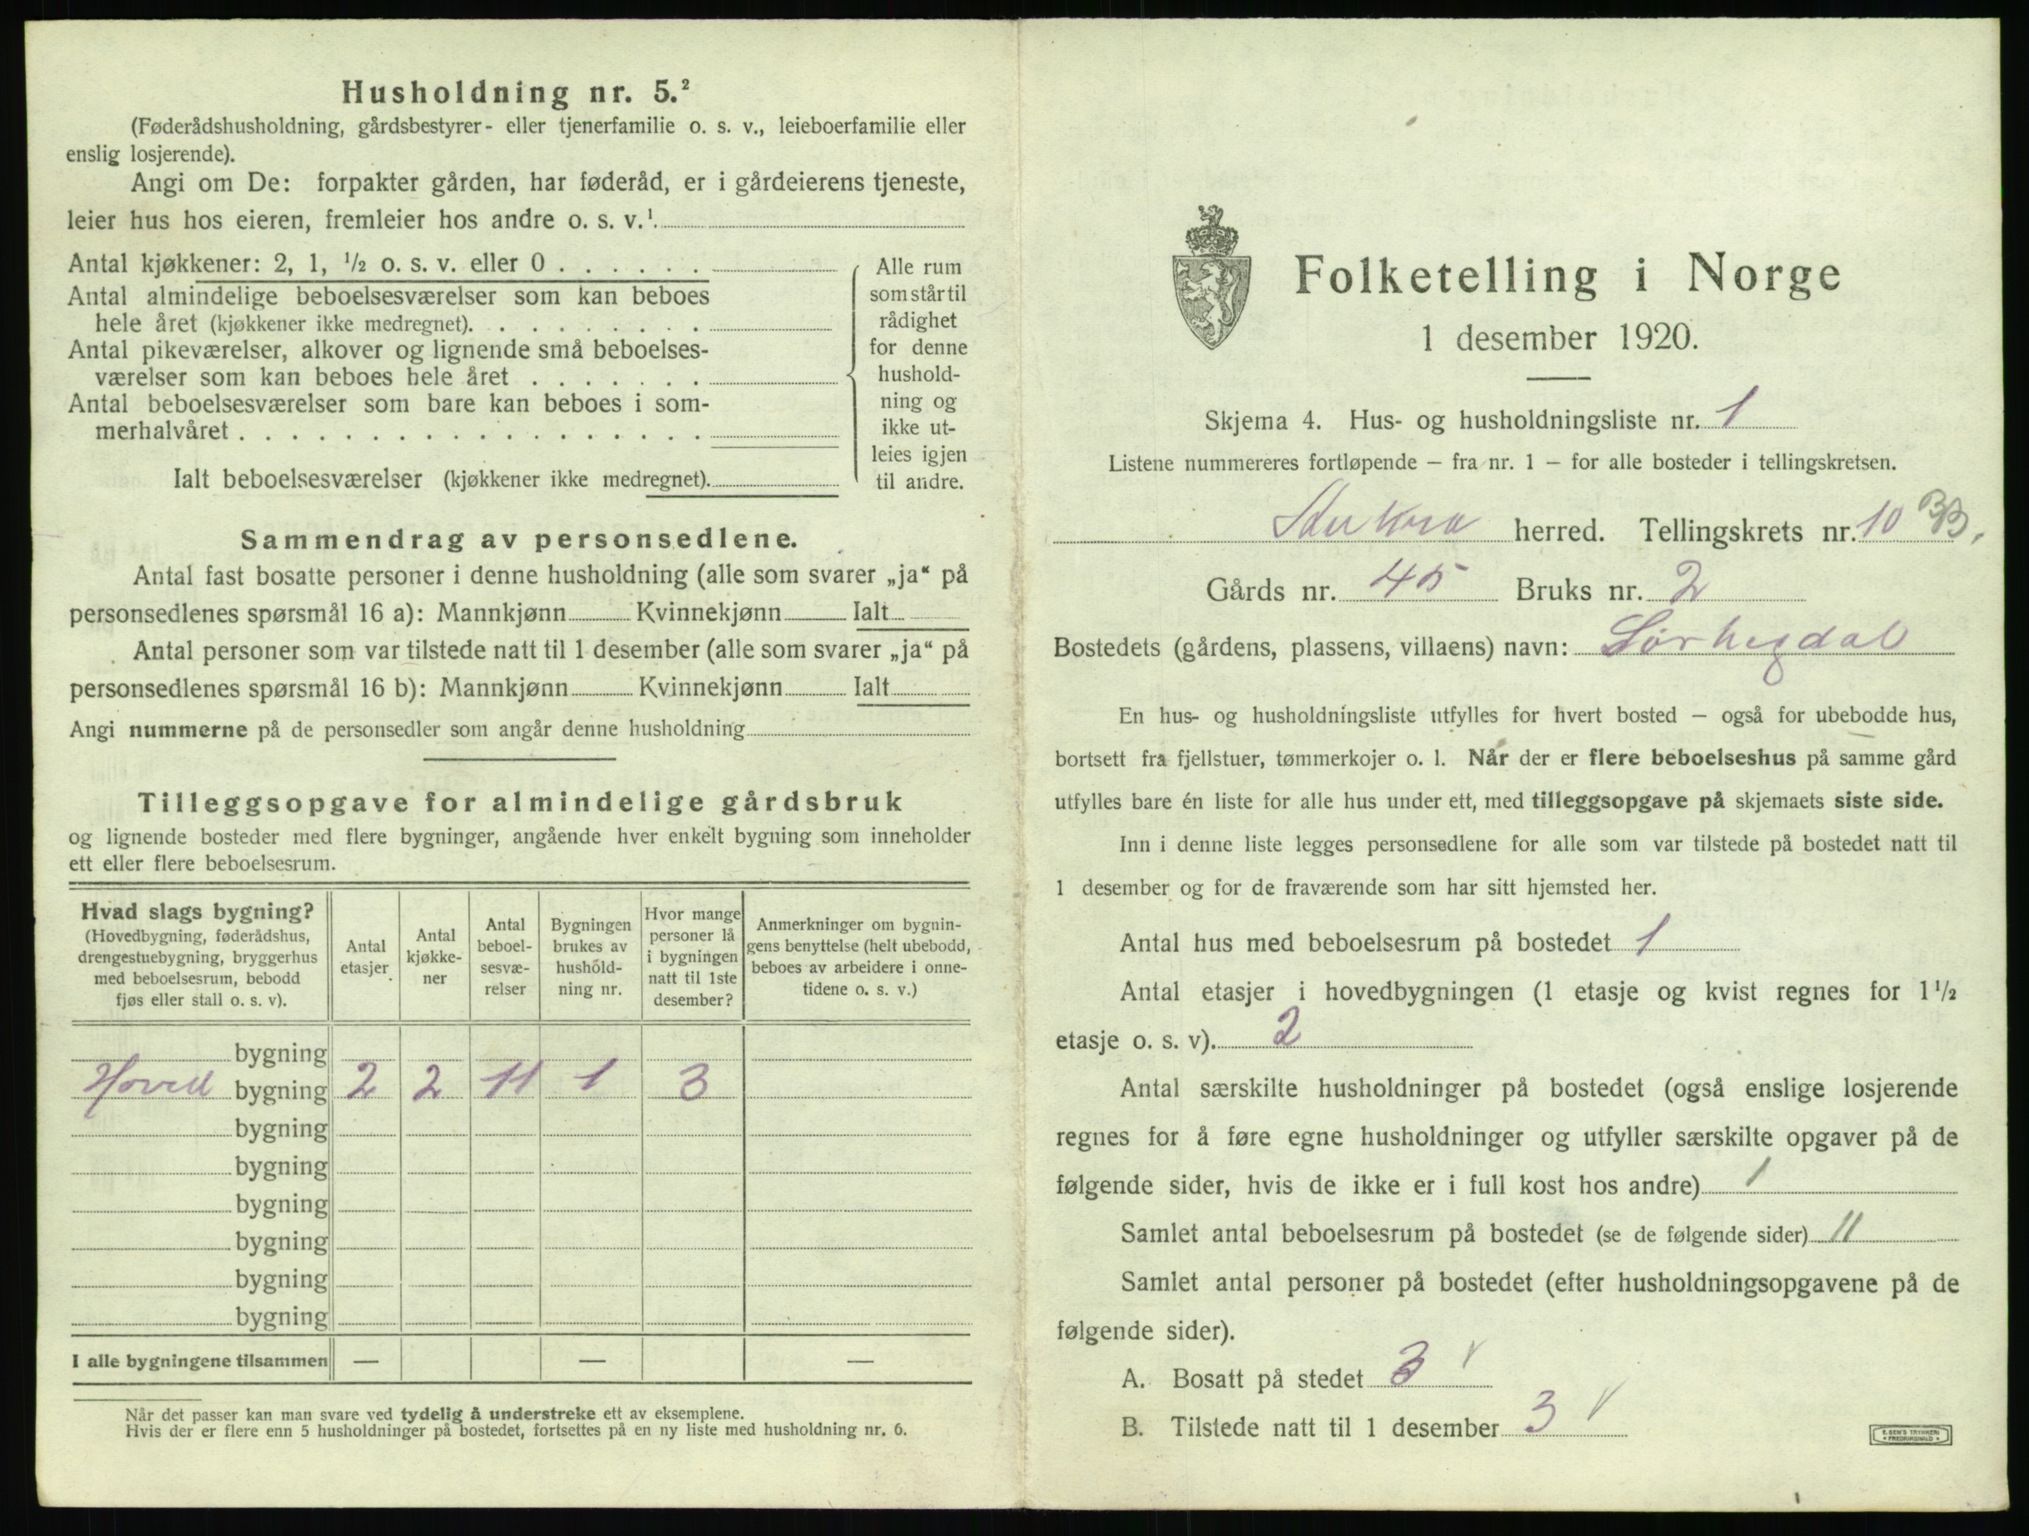 Husholdning nr. 5.²
(Føderådshusholdning, gårdsbestyrer- eller tjenerfamilie o. s. v., leieboerfamilie eller
enslig losjerende).
Angi om De: forpakter gården, har føderåd, er i gårdeierens tjeneste,
leier hus hos eieren, fremleier hos andre o. s. v.¹
Antal kjøkkener: 2, 1, ½ o. s. v. eller 0 . . . . . .
Antal almindelige beboelsesværelser som kan beboes
hele året (kjøkkener ikke medregnet). . . . . . . . .
Antal pikeværelser, alkover og lignende små beboelses-
værelser som kan beboes hele året . . . . . . .
Antal beboelsesværelser som bare kan beboes i som-
merhalvåret . . . . . . . . . . . . . . . . . .
Ialt beboelsesværelser (kjøkkener ikke medregnet).
Alle rum
som står til
rådighet
for denne
hushold-
ning og
ikke ut-
leies igjen
til andre.
Sammendrag av personsedlene.
Antal fast bosatte personer i denne husholdning (alle som svarer „ja“ på
personsedlenes spørsmål 16 a): Mannkjønn Kvinnekjønn Ialt
Antal personer som var tilstede natt til 1 desember (alle som svarer „ja“ på
personsedlenes spørsmål 16 b): Mannkjønn Kvinnekjønn Ialt
Angi nummerne på de personsedler som angår denne husholdning
Tilleggsopgave for almindelige gårdsbruk
og lignende bosteder med flere bygninger, angående hver enkelt bygning som inneholder
ett eller flere beboelsesrum.
Hvad slags bygning?
(Hovedbygning, føderådshus,
drengestuebygning, bryggerhus
med beboelsesrum, bebodd
fjøs eller stall o. s. v).
Antal
etasjer
Antal
kjøkke-
ner
Antal
beboel-
sesvæ-
relser
Bygningen
brukes av
hushold-
ning nr.
Hvor mange
personer lå
i bygningen
natt til 1ste
desember?
Anmerkninger om bygnin-
gens benyttelse (helt ubebodd,
beboes av arbeidere i onne-
tidene o. s. v.)
bygning
Hoved bygning 2 2 11 1 3
bygning
bygning
bygning
bygning
bygning
bygning
I alle bygningene tilsammen — — —
Når det passer kan man svare ved tydelig å understreke ett av eksemplene.
Hvis der er flere enn 5 husholdninger på bostedet, fortsettes på en ny liste med husholdning nr. 6.
Folketelling i Norge
1 desember 1920.
Skjema 4. Hus- og husholdningsliste nr. 1
Listene nummereres fortløpende – fra nr. 1 – for alle bosteder i tellingskretsen.
herred. Tellingskrets nr. 10 BB.
Gårds nr. 45 Bruks nr. 2
Bostedets (gårdens, plassens, villaens) navn: Sørhegdal
En hus- og husholdningsliste utfylles for hvert bosted – også for ubebodde hus,
bortsett fra fjellstuer, tømmerkojer o. l. Når der er flere beboelseshus på samme gård
utfylles bare én liste for alle hus under ett, med tilleggsopgave på skjemaets siste side.
Inn i denne liste legges personsedlene for alle som var tilstede på bostedet natt til
1 desember og for de fraværende som har sitt hjemsted her.
Antal hus med beboelsesrum på bostedet 1
Antal etasjer i hovedbygningen (1 etasje og kvist regnes for 1½
etasje o. s. v). 2
Antal særskilte husholdninger på bostedet (også enslige losjerende
regnes for å føre egne husholdninger og utfyller særskilte opgaver på de
følgende sider, hvis de ikke er i full kost hos andre) 1
Samlet antal beboelsesrum på bostedet (se de følgende sider) 11
Samlet antal personer på bostedet (efter husholdningsopgavene på de
følgende sider).
A. Bosatt på stedet 3 √
B. Tilstede natt til 1 desember 3 √